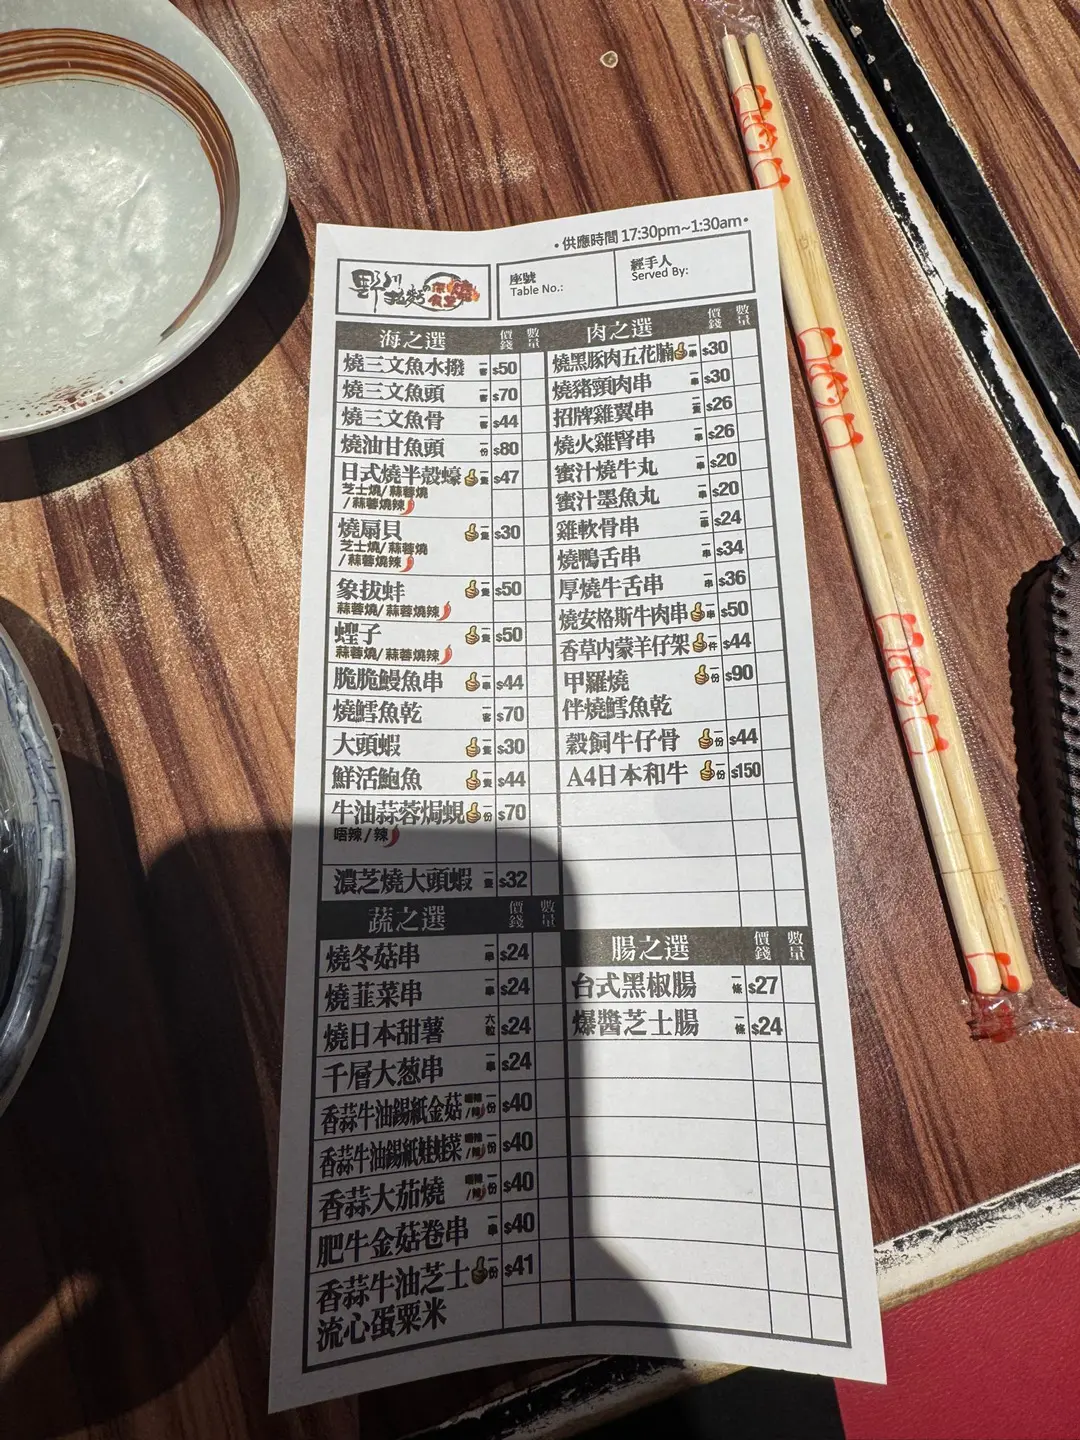 •供應時間 17:30pm~1:30am•
野川
拉麵の深宵
食堂
座號
Table No.:
經手人
Served By:
海之選 價錢 數量
燒三文魚水撥 一客 $50
燒三文魚頭 一客 $70
燒三文魚骨 一客 $44
燒油甘魚頭 一份 $80
日式燒半殼蠔 一隻 $47
芝士燒/蒜蓉燒
/蒜蓉燒辣
燒扇貝 一隻 $30
芝士燒/蒜蓉燒
/蒜蓉燒辣
象拔蚌 一隻 $50
蒜蓉燒/蒜蓉燒辣
蟶子 一隻 $50
蒜蓉燒/蒜蓉燒辣
脆脆鰻魚串 一串 $44
燒鱈魚乾 一客 $70
大頭蝦 一隻 $30
鮮活鮑魚 一隻 $44
牛油蒜蓉焗蜆 一份 $70
唔辣/辣
濃芝燒大頭蝦 一隻 $32
肉之選 價錢 數量
燒黑豚肉五花腩 一串 $30
燒豬頸肉串 一串 $30
招牌雞翼串 一隻 $26
燒火雞腎串 一串 $26
蜜汁燒牛丸 一串 $20
蜜汁墨魚丸 一串 $20
雞軟骨串 一串 $24
燒鴨舌串 一串 $34
厚燒牛舌串 一串 $36
燒安格斯牛肉串 一串 $50
香草內蒙羊仔架 一件 $44
甲羅燒 一份 $90
伴燒鱈魚乾
穀飼牛仔骨 一份 $44
A4日本和牛 一份 $150
蔬之選 價錢 數量
燒冬菇串 一串 $24
燒韮菜串 一串 $24
燒日本甜薯 六粒 $24
千層大葱串 一串 $24
香蒜牛油錫紙金菇 唔辣/辣 一份 $40
香蒜牛油錫紙娃娃菜 唔辣/辣 一份 $40
香蒜大茄燒 唔辣/辣 一份 $40
肥牛金菇卷串 一串 $40
香蒜牛油芝士 一份 $41
流心蛋粟米
腸之選 價錢 數量
台式黑椒腸 一條 $27
爆醬芝士腸 一條 $24